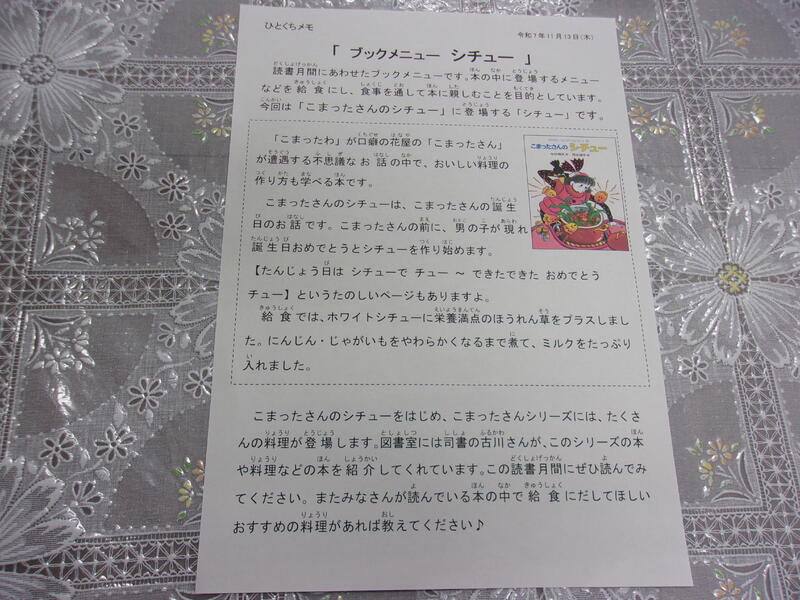 ひとくちメモ
令和7年11月13日(木)
「 ブックメニュー シチュー 」
読書月間にあわせたブックメニューです。本の中に登場するメニュー
などを給食にし、食事を通して本に親しむことを目的としています。
今回は「こまったさんのシチュー」に登場する「シチュー」です。
「こまったわ」が口癖の花屋の「こまったさん」
が遭遇する不思議なお話の中で、おいしい料理の
作り方も学べる本です。
こまったさんのシチューは、こまったさんの誕生
日のお話です。こまったさんの前に、男の子が現れ
誕生日おめでとうとシチューを作り始めます。
【たんじょう日は シチューで チュー ～ できたできた おめでとう
チュー】というたのしいページもありますよ。
給食では、ホワイトシチューに栄養満点のほうれん草をプラスしまし
た。にんじん・じゃがいもをやわらかくなるまで煮て、ミルクをたっぷり
入れました。
こまったさんの シチュー
こまったさんのシチューをはじめ、こまったさんシリーズには、たくさ
んの料理が登場します。図書室には司書の古川さんが、このシリーズの本
や料理などの本を紹介してくれています。この読書月間にぜひ読んでみ
てください。またみなさんが読んでいる本の中で給食にだしてほしい
おすすめの料理があれば教えてください♪